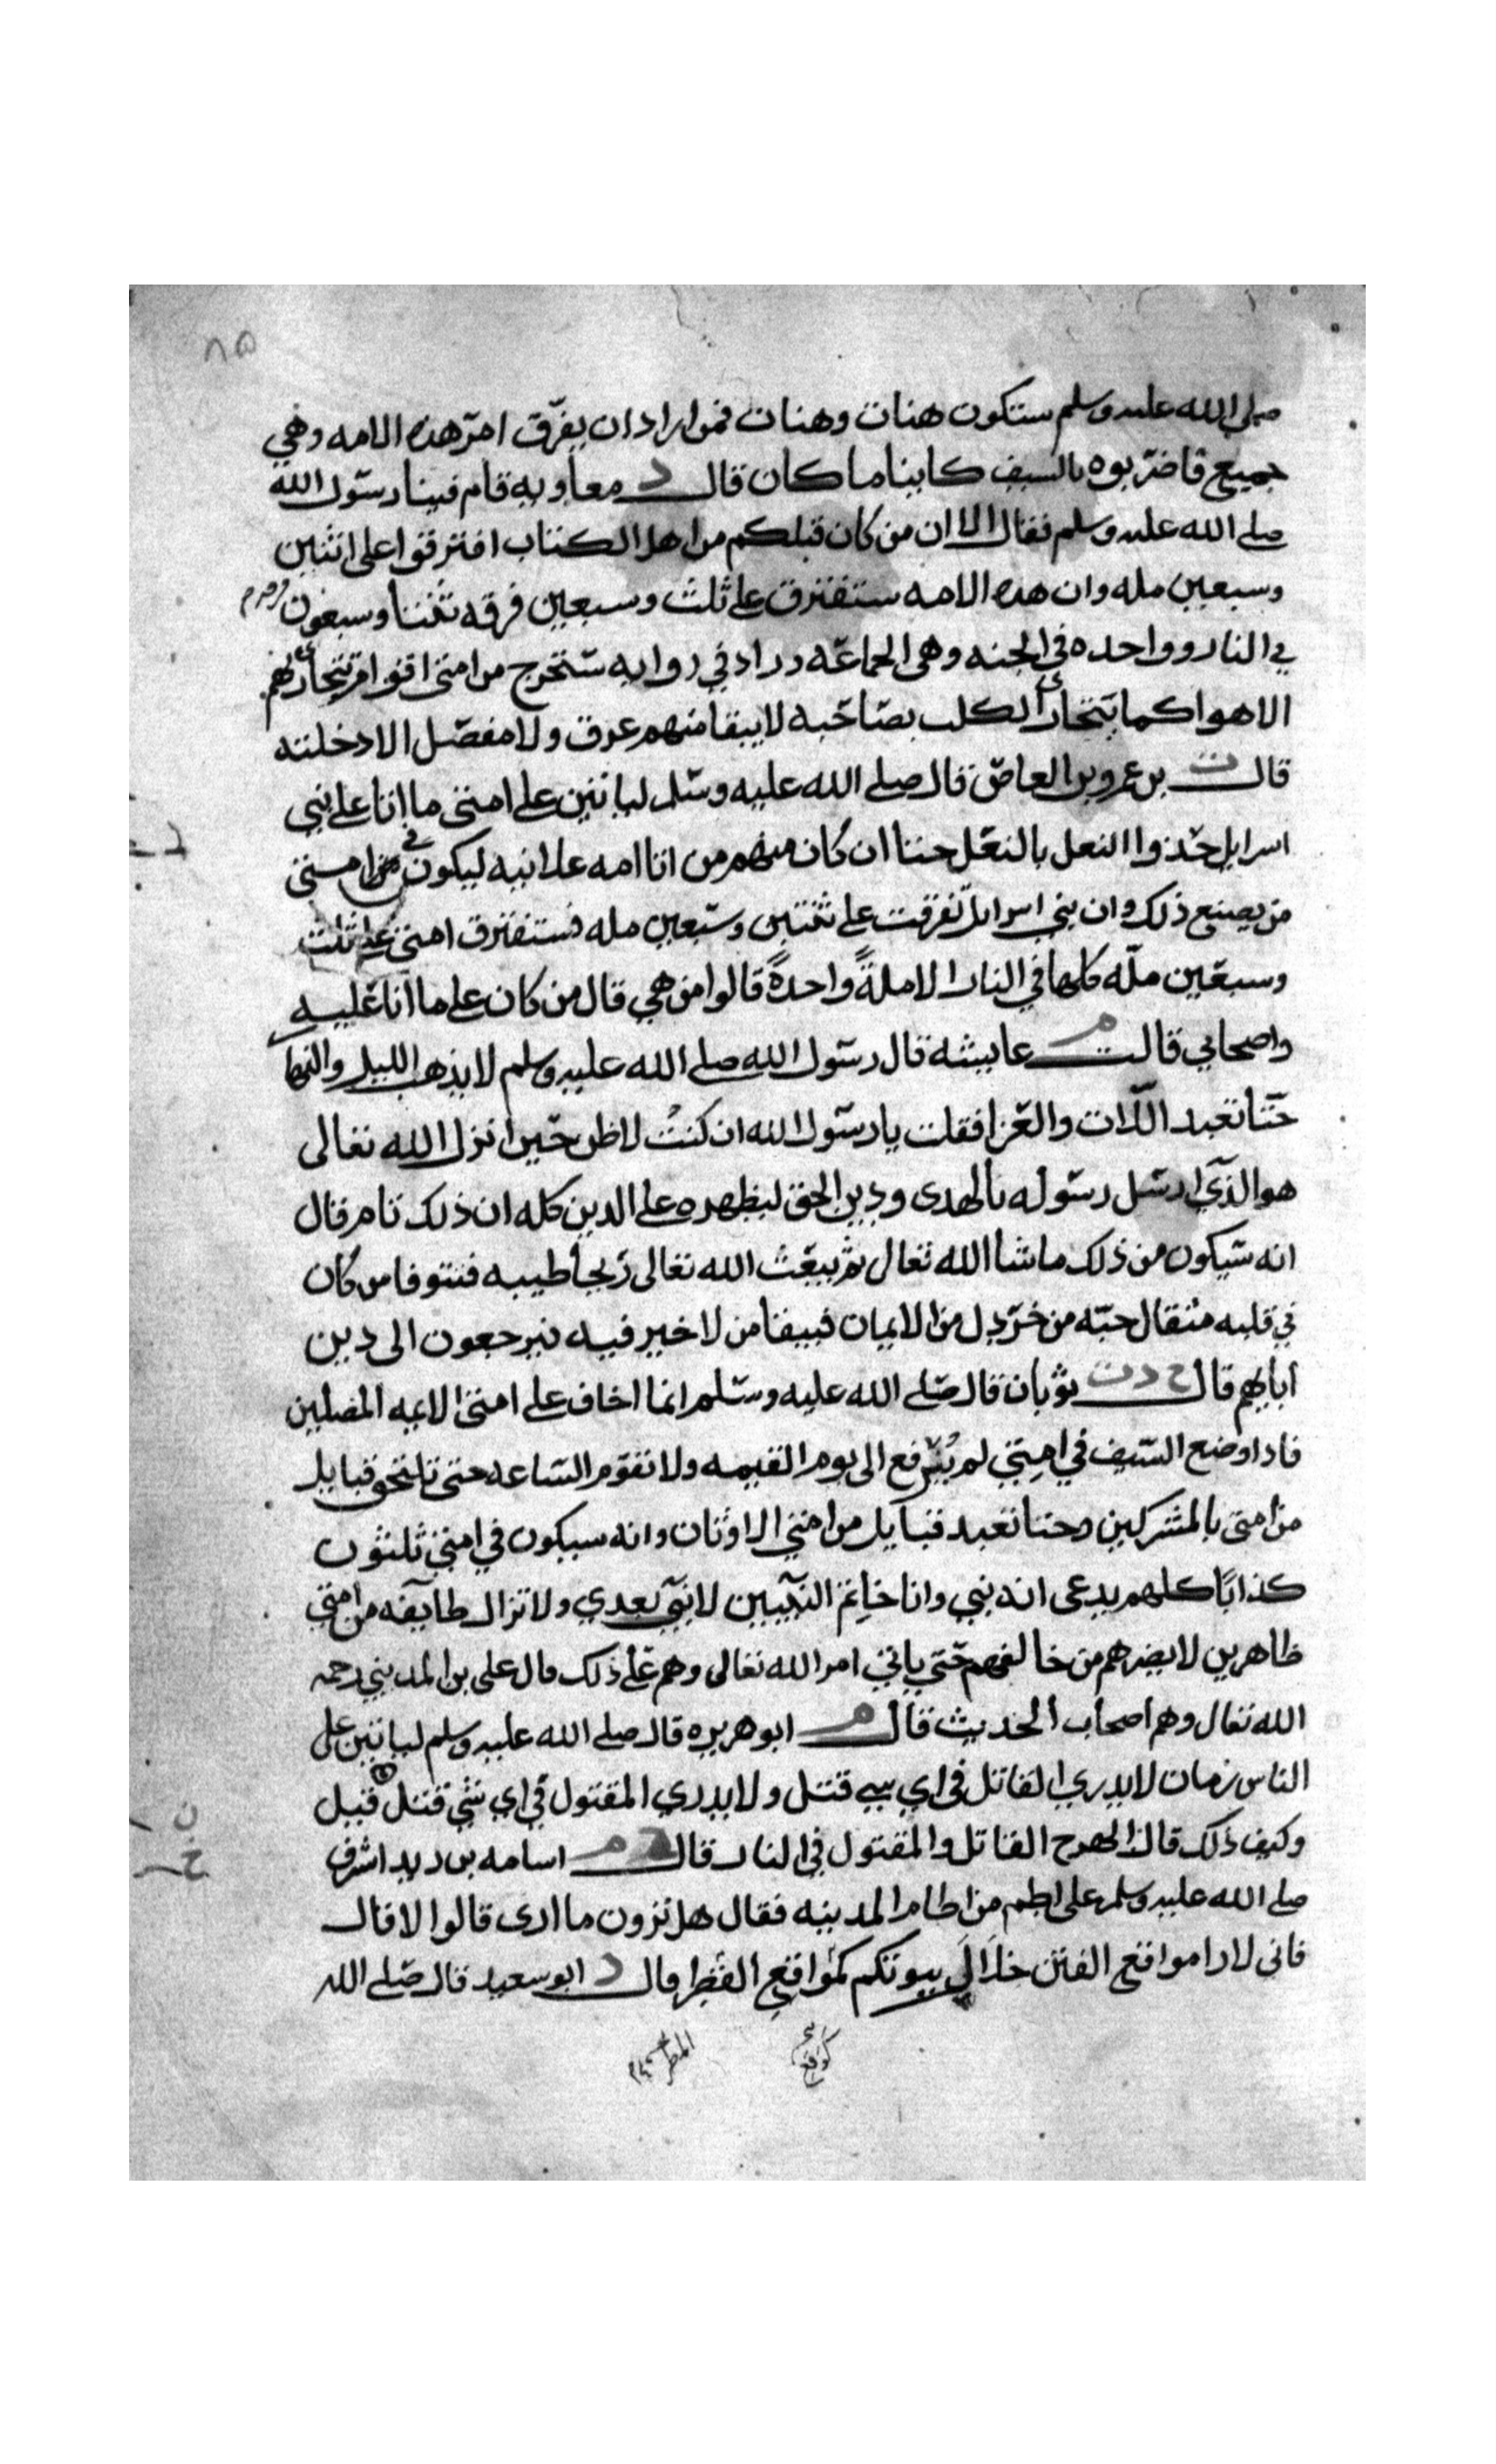 ٨٥
صلى الله عليه وسلم ستكون هنات وهنات فمن اراد ان يفرّق امر هذه الامه وهي
جميع فاضربوه بالسيف كاينا ما كان قال د معاويه قام فينا رسول الله
صلى الله عليه وسلم فقال الا ان من كان قبلكم من اهل الكتاب افترقوا على اثنين
وسبعين مله وان هذه الامه ستفترق على ثلث وسبعين فرقه ثنتا وسبعون
في النار وواحده في الجنه وهي الجماعه وزاد في روايه ستخرج من امتي اقوام تتجارى بهم
الاهوا كما يتجارى الكلب بصاحبه لا يبقا منهم عرق ولا مفصل الا دخلته
قال ت بن عمرو بن العاص قال صلى الله عليه وسلم لياتين على امتي ما اتا على بني
اسرايل حذوا النعل بالنعل حتا ان كان منهم من اتا امه علانيه ليكون في امتي
من يصنع ذلك وان بني اسرايل تفرقت على ثنتين وسبعين مله فستفترق امتي على ثلث
وسبعين ملّه كلها في النار الا ملةً واحدةً قالوا من هي قال من كان على ما انا عليه
واصحابي قالت م عايشه قال رسول الله صلى الله عليه وسلم لا يذهب الليل والنها
حتا تعبد اللات والعزا فقلت يا رسول الله ان كنتُ لاظن حين انزل الله تعالى
هو الذي ارسل رسوله بالهدى ودين الحق ليظهره على الدين كله ان ذلك تام قال
انه سيكون من ذلك ما شا الله تعالى ثم يبعث الله تعالى ريحا طيبه فتتوفا من كان
في قلبه مثقال حبه من خردل من الايمان فيبقا من لا خير فيه فيرجعون الى دين
ابايهم قال ح د ت ثوبان قال صلى الله عليه وسلم انما اخاف على امتي الايمه المضلين
فاذا وضع السيف في امتي لم يُرفع الى يوم القيمه ولا تقوم الساعه حتى تلحق قبايل
من امتي بالمشركين وحتا تعبد قبايل من امتي الاوثان وانه سيكون في امتي ثلثون
كذابًا كلهم يدعى انه نبي وانا خاتم النبيين لا نبي بعدي ولا تزال طايفه من امتي
ظاهرين لا يضرهم من خالفهم حتى ياتي امر الله تعالى وهم على ذلك قال على بن المديني رحمه
الله تعالى وهم اصحاب الحديث قال م ابو هريره قال صلى الله عليه وسلم لياتين على
الناس زمان لا يدري القاتل في اي شي قتل ولا يدري المقتول في اي شي قتل قيل
وكيف ذلك قال الهرج القاتل والمقتول في النار قال م اسامه بن زيد اشرف
صلى الله عليه وسلم على اطم من اطام المدينه فقال هل ترون ما ارى قالوا لا قال
فانى لارا مواقع الفتن خلال بيوتكم كمواقع القطر قال د ابو سعيد قال صلى الله
كوقع
المطر